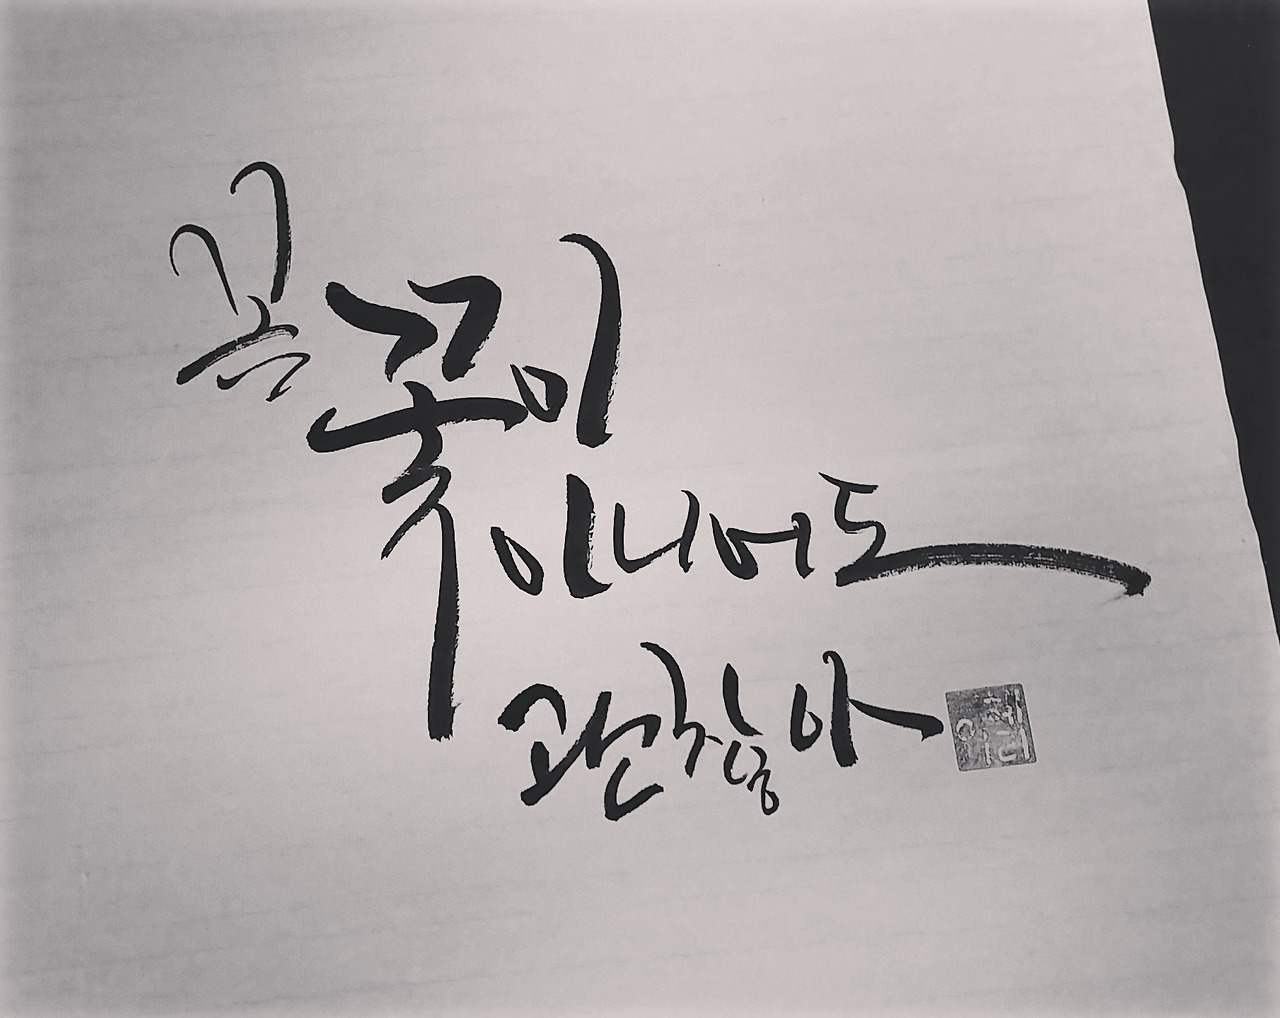 꼭 꽃이
아니어도
괜찮아